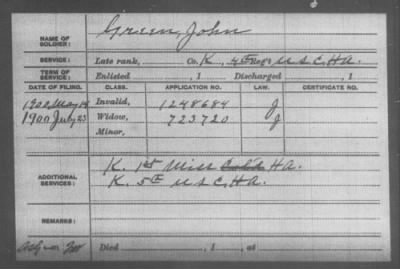 NAME OF SOLDIER: Green, John
SERVICE: Late rank, Co. K, 4th Reg't U.S.C.H.A.
TERM OF SERVICE: Enlisted , 1 Discharged , 1
DATE OF FILING. CLASS. APPLICATION NO. LAW. CERTIFICATE NO.
1900 May Invalid, 1248684 J
1900 July 23 Widow, 723720 J
Minor,
ADDITIONAL SERVICES: K. 1st Miss H.A.
K. 5th U.S.C.H.A.
REMARKS:
Died , 1 , at